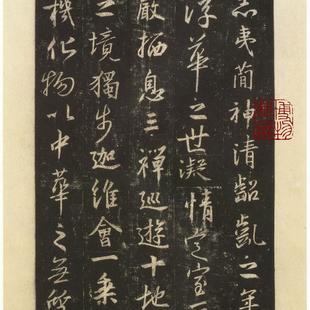 志夷簡神清齠齔之年
浮華之世凝情定室
巖栖息三禪巡遊十地
之境獨步迦維會一乘
機化物以中華之無質